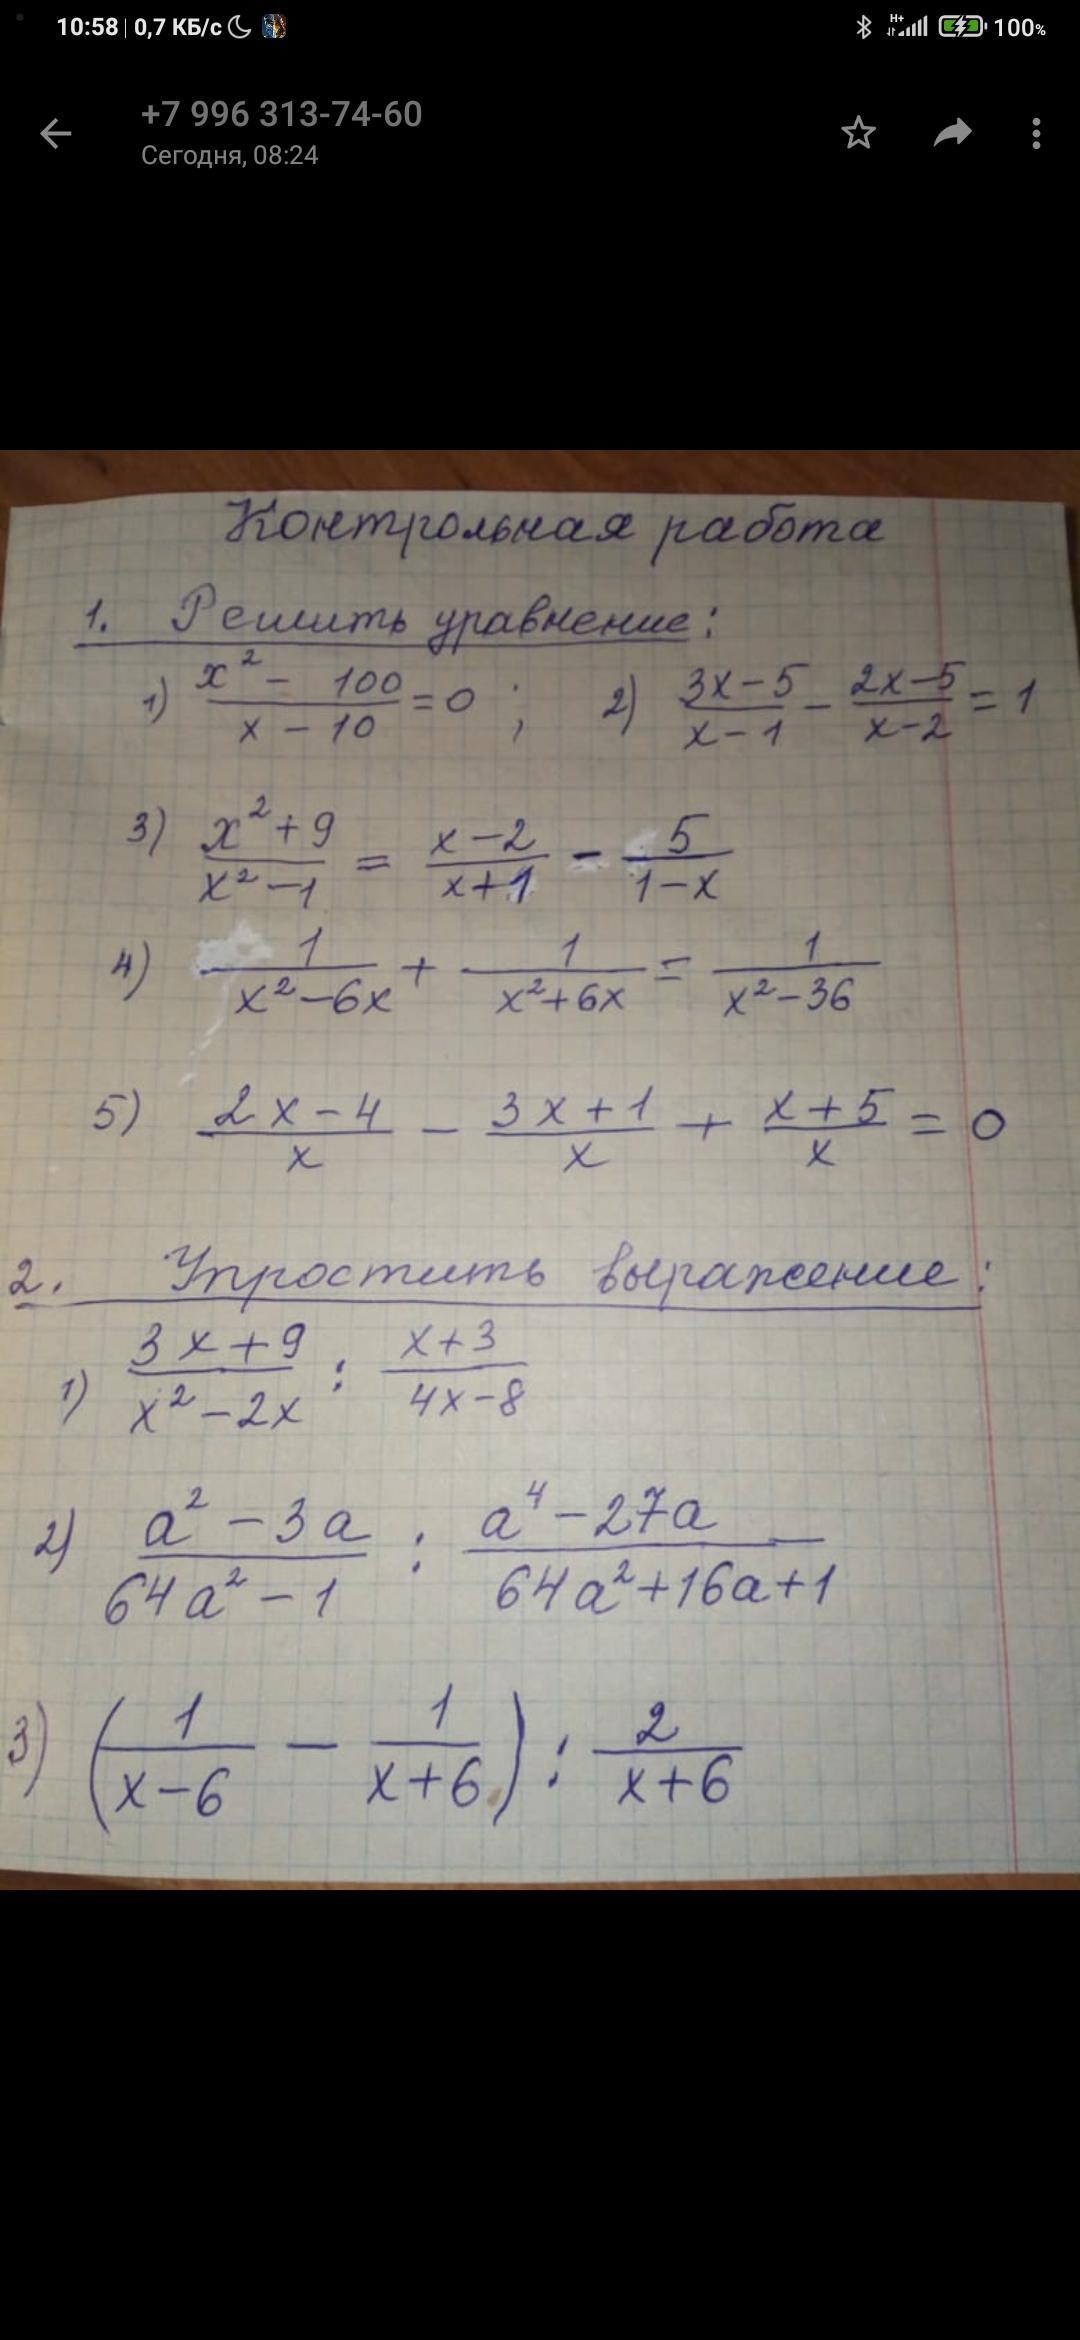 10:58 | 0,7 КБ/с H+ 100%
+7 996 313-74-60
Сегодня, 08:24
Контрольная работа
1. Решить уравнение:
1) (x² - 100)/(x - 10) = 0 ; 2) (3x - 5)/(x - 1) - (2x - 5)/(x - 2) = 1
3) (x² + 9)/(x² - 1) = (x - 2)/(x + 1) - 5/(1 - x)
4) 1/(x² - 6x) + 1/(x² + 6x) = 1/(x² - 36)
5) (2x - 4)/x - (3x + 1)/x + (x + 5)/x = 0
2. Упростить выражение:
1) (3x + 9)/(x² - 2x) : (x + 3)/(4x - 8)
2) (a² - 3a)/(64a² - 1) : (a⁴ - 27a)/(64a² + 16a + 1)
3) (1/(x - 6) - 1/(x + 6)) : 2/(x + 6)